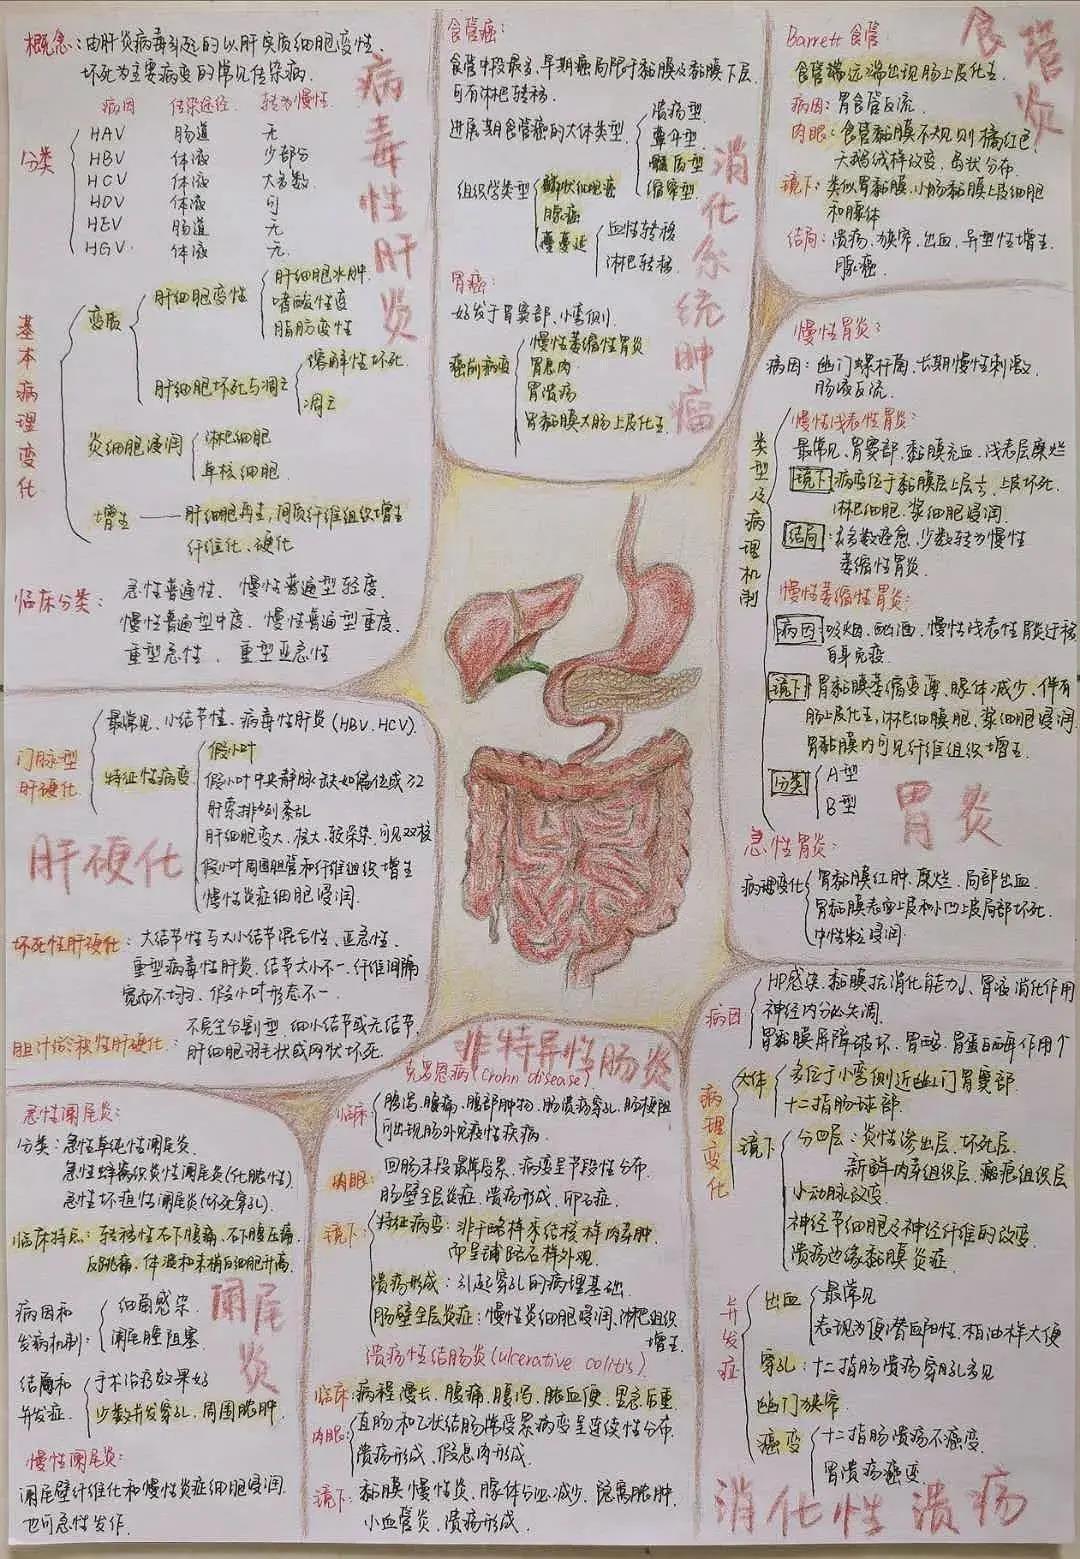 病毒性肝炎
概念：由肝炎病毒引起的以肝实质细胞变性、
坏死为主要病变的常见传染病.
病因 传染途径 转为慢性
分类
HAV 肠道 无
HBV 体液 少部分
HCV 体液 大多数
HDV 体液 可
HEV 肠道 无
HGV 体液 无
基本病理变化
变质
肝细胞变性
肝细胞水肿
嗜酸性变
脂肪变性
肝细胞坏死与凋亡
溶解性坏死
凋亡
炎细胞浸润
淋巴细胞
单核细胞
增生——肝细胞再生,间质纤维组织增生
纤维化、硬化
临床分类：急性普遍性、慢性普遍型轻度、
慢性普遍型中度、慢性普遍型重度、
重型急性、重型亚急性
消化系统肿瘤
食管癌：
食管中段最多,早期癌局限于黏膜及黏膜下层,
可有淋巴转移.
进展期食管癌的大体类型
溃疡型
蕈伞型
髓质型
缩窄型
组织学类型
鳞状细胞癌
腺癌
癌蔓延
血性转移
淋巴转移
胃癌：
好发于胃窦部、小弯侧.
癌前病变
慢性萎缩性胃炎
胃息肉
胃溃疡
胃黏膜大肠上皮化生
食管炎
Barrett食管
食管端远端出现肠上皮化生
病因：胃食管反流.
肉眼：食管黏膜不规则橘红色.
天鹅绒样改变,岛状分布.
镜下：类似胃黏膜,小肠黏膜上皮细胞
和腺体
结局：溃疡、狭窄、出血、异型性增生
腺癌.
胃炎
慢性胃炎：
病因：幽门螺杆菌、长期慢性刺激、
肠液反流.
类型及病理机制
慢性浅表性胃炎：
最常见、胃窦部、黏膜充血、浅表层糜烂
镜下：病变位于黏膜层上层⅓、上皮坏死.
淋巴细胞、浆细胞浸润.
结局：大多数痊愈,少数转为慢性
萎缩性胃炎.
慢性萎缩性胃炎：
病因：吸烟、酗酒、慢性浅表性胃炎迁移
自身免疫.
镜下：胃黏膜萎缩变薄、腺体减少、伴有
肠上皮化生,淋巴细膜胞、浆细胞浸润.
胃黏膜内可见纤维组织增生.
分类
A型
B型
急性胃炎：
病理变化
胃黏膜红肿、糜烂、局部出血.
胃黏膜表面上皮和小凹上皮局部坏死.
中性粒浸润.
肝硬化
门脉型肝硬化
最常见、小结节性、病毒性肝炎(HBV、HCV).
特征性病变
假小叶
假小叶中央静脉缺如偏位或>2
肝索排列紊乱
肝细胞变大、核大、较深染、可见双核
假小叶周围胆管和纤维组织增生
慢性炎症细胞浸润.
坏死性肝硬化：大结节性与大小结节混合性、亚急性、
重型病毒性肝炎.结节大小不一、纤维间隔
宽而不均匀、假小叶形态不一.
胆汁淤积性肝硬化：不完全分割型、细小结节或无结节,
肝细胞羽毛状或网状坏死.
阑尾炎
急性阑尾炎：
分类：急性单纯性阑尾炎.
急性蜂窝织炎性阑尾炎(化脓性).
急性坏疽性阑尾炎(坏死穿孔).
临床特点：转移性右下腹痛,右下腹压痛
反跳痛、体温和末梢白细胞升高.
病因和发病机制：
细菌感染.
阑尾腔阻塞
结局和并发症.
手术治疗效果好
少数并发穿孔、周围脓肿.
慢性阑尾炎：
阑尾壁纤维化和慢性炎症细胞浸润.
也可急性发作.
非特异性肠炎
克罗恩病(Crohn disease)
临床
腹泻、腹痛、腹部肿物、肠溃疡穿孔,肠梗阻
可出现肠外免疫性疾病.
肉眼：
回肠末段最常受累、病变呈节段性分布.
肠壁全层炎症、溃疡形成、卵石症.
镜下：
特征病变：非干酪样坏结核样肉芽肿.
而呈铺路石样外观.
溃疡形成：引起穿孔的病理基础.
肠壁全层炎症：慢性炎细胞浸润、淋巴组织
增生.
溃疡性结肠炎(ulcerative colitis)
临床：病程漫长、腹痛、腹泻、脓血便、里急后重.
肉眼：直肠和乙状结肠常受累病变呈连续性分布.
溃疡形成、假息肉形成.
镜下：黏膜慢性炎、腺体分泌减少、隐窝脓肿.
小血管炎、溃疡形成.
消化性溃疡
病因
HP感染、黏膜抗消化能力↓、胃液消化作用
神经内分泌失调.
胃黏膜屏障破坏、胃酸、胃蛋白酶作用↑
病理变化
大体
多位于小弯侧近幽门胃窦部.
十二指肠球部.
镜下
分四层：炎性渗出层、坏死层.
新鲜肉芽组织层、瘢痕组织层
小动脉改变.
神经节细胞及神经纤维的改变.
溃疡边缘黏膜炎症
并发症
出血
最常见
表现为便潜血阳性、柏油样大便
穿孔：十二指肠溃疡穿孔多见
幽门狭窄
癌变
十二指肠溃疡不癌变.
胃溃疡癌变.